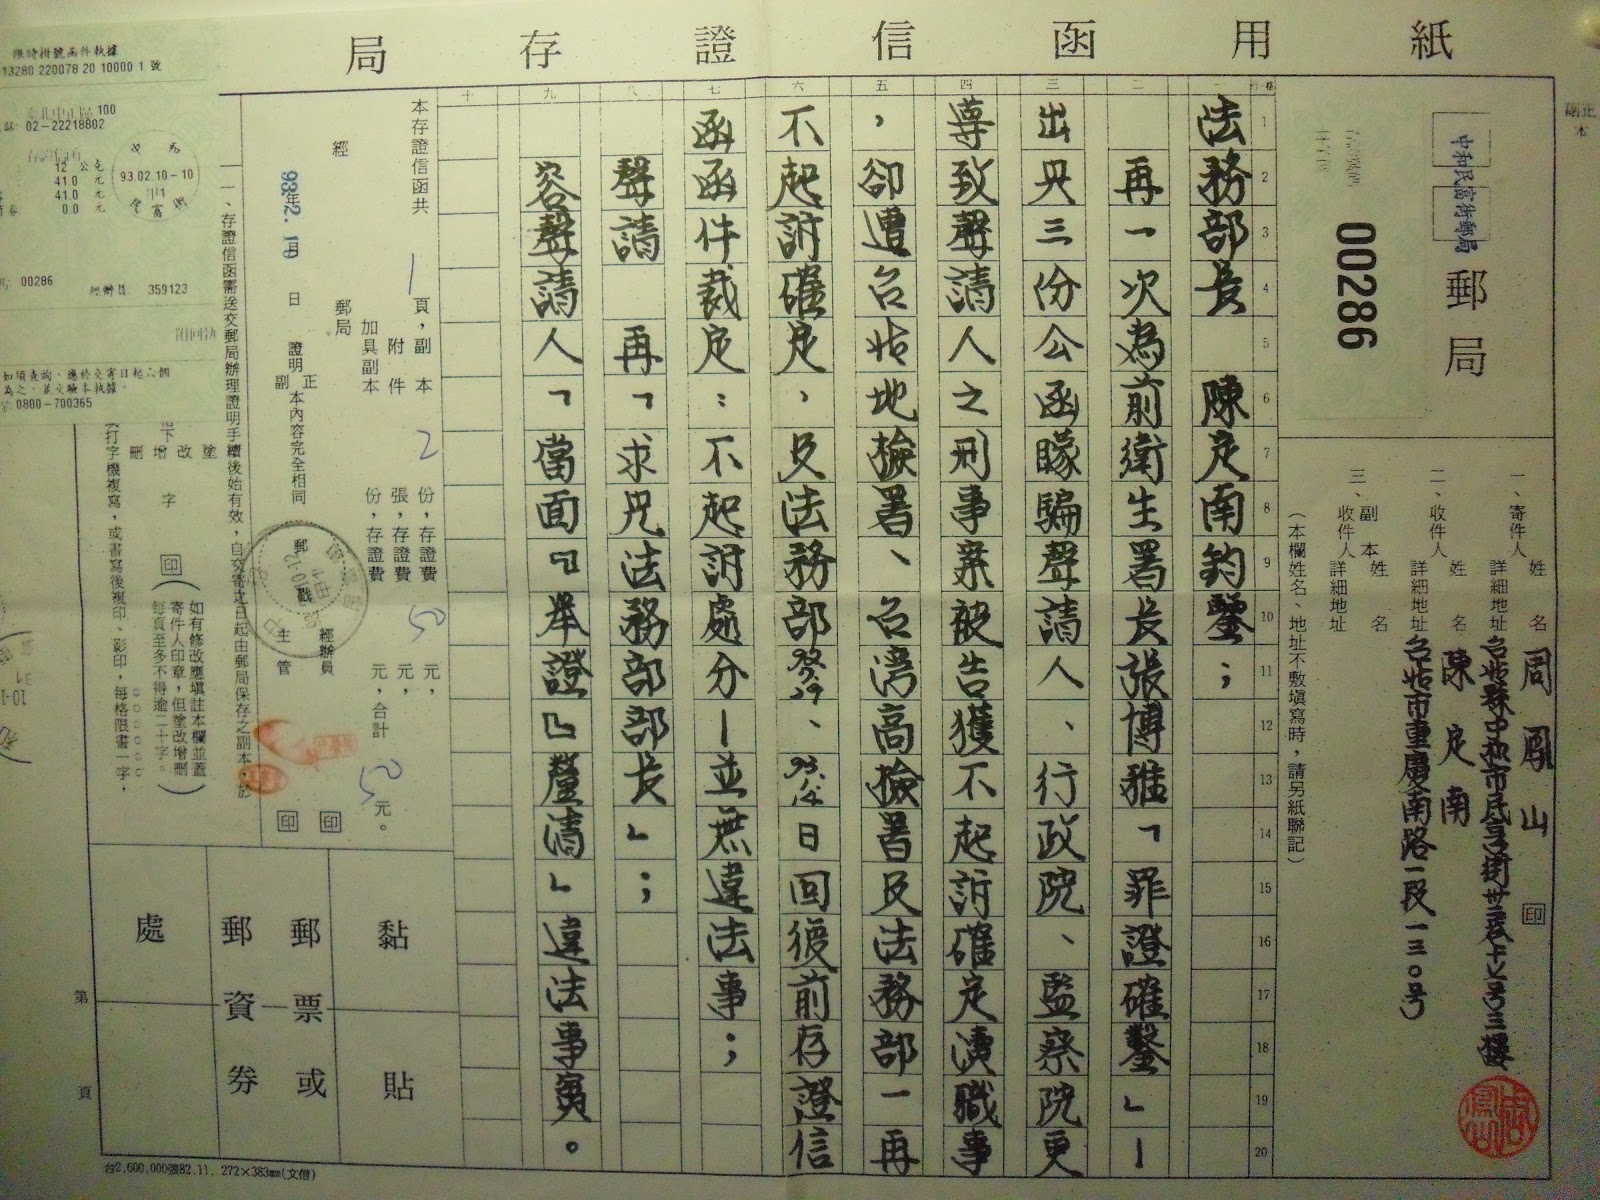 局存證信函用紙
正
副
本
中和民富街郵局
郵局
00286
一、寄件人
姓名 周鳳山 印
詳細地址 台北縣中和市民富街
二、收件人
姓名 陳定南
詳細地址 台北市重慶南路一段一三〇号
三、副本收件人
姓名
詳細地址
（本欄姓名、地址不敷填寫時，請另紙聯記）
格行 一 二 三 四 五 六 七 八 九 十
1 2 3 4 5 6 7 8 9 10 11 12 13 14 15 16 17 18 19 20
法務部長 陳定南鈞鑒；
再一次為前衛生署長張博雅「罪證確鑿」—
出具三份公函矇騙聲請人、行政院、監察院更
導致聲請人之刑事案被告獲不起訴確定瀆職事
，卻遭台北地檢署、台灣高檢署及法務部一再
不起訴確定，及法務部 、 日回復前存證信
函函件裁定：不起訴處分—並無違法事；
聲請 再「求見法務部部長」；
容聲請人「當面『舉證』釐清」違法事實。
本存證信函共 1 頁，副本 2 份，存證費 50 元，
附件 張，存證費 元，
加具副本 份，存證費 元，合計 50 元。
經 郵局
93年2.10 日 證明正副本內容完全相同 郵戳 經辦員 主管 印 印
一、存證信函需送交郵局辦理證明手續後始有效，自交寄之日起由郵局保存之副本，於
塗改增刪 字 印
如有修改應填註本欄並蓋
寄件人印章，但塗改增刪
每頁至多不得逾二十字。
打字機複寫，或書寫後複印、影印，每格限書一字，
黏貼
郵票或
郵資券
處
第 頁
台2,600,000張82.11. 272×383mm(文信)
限時掛號函件執據
13280 220078 20 10000 1 號
台北中正區 100
02-22218802
12 公克
41.0 元
41.0 元
0.0 元
93.02.10-10
00286
經辦員 359123
附回執
如須查詢，應於交寄日起六個
為之，並交驗本執據。
0800-700365